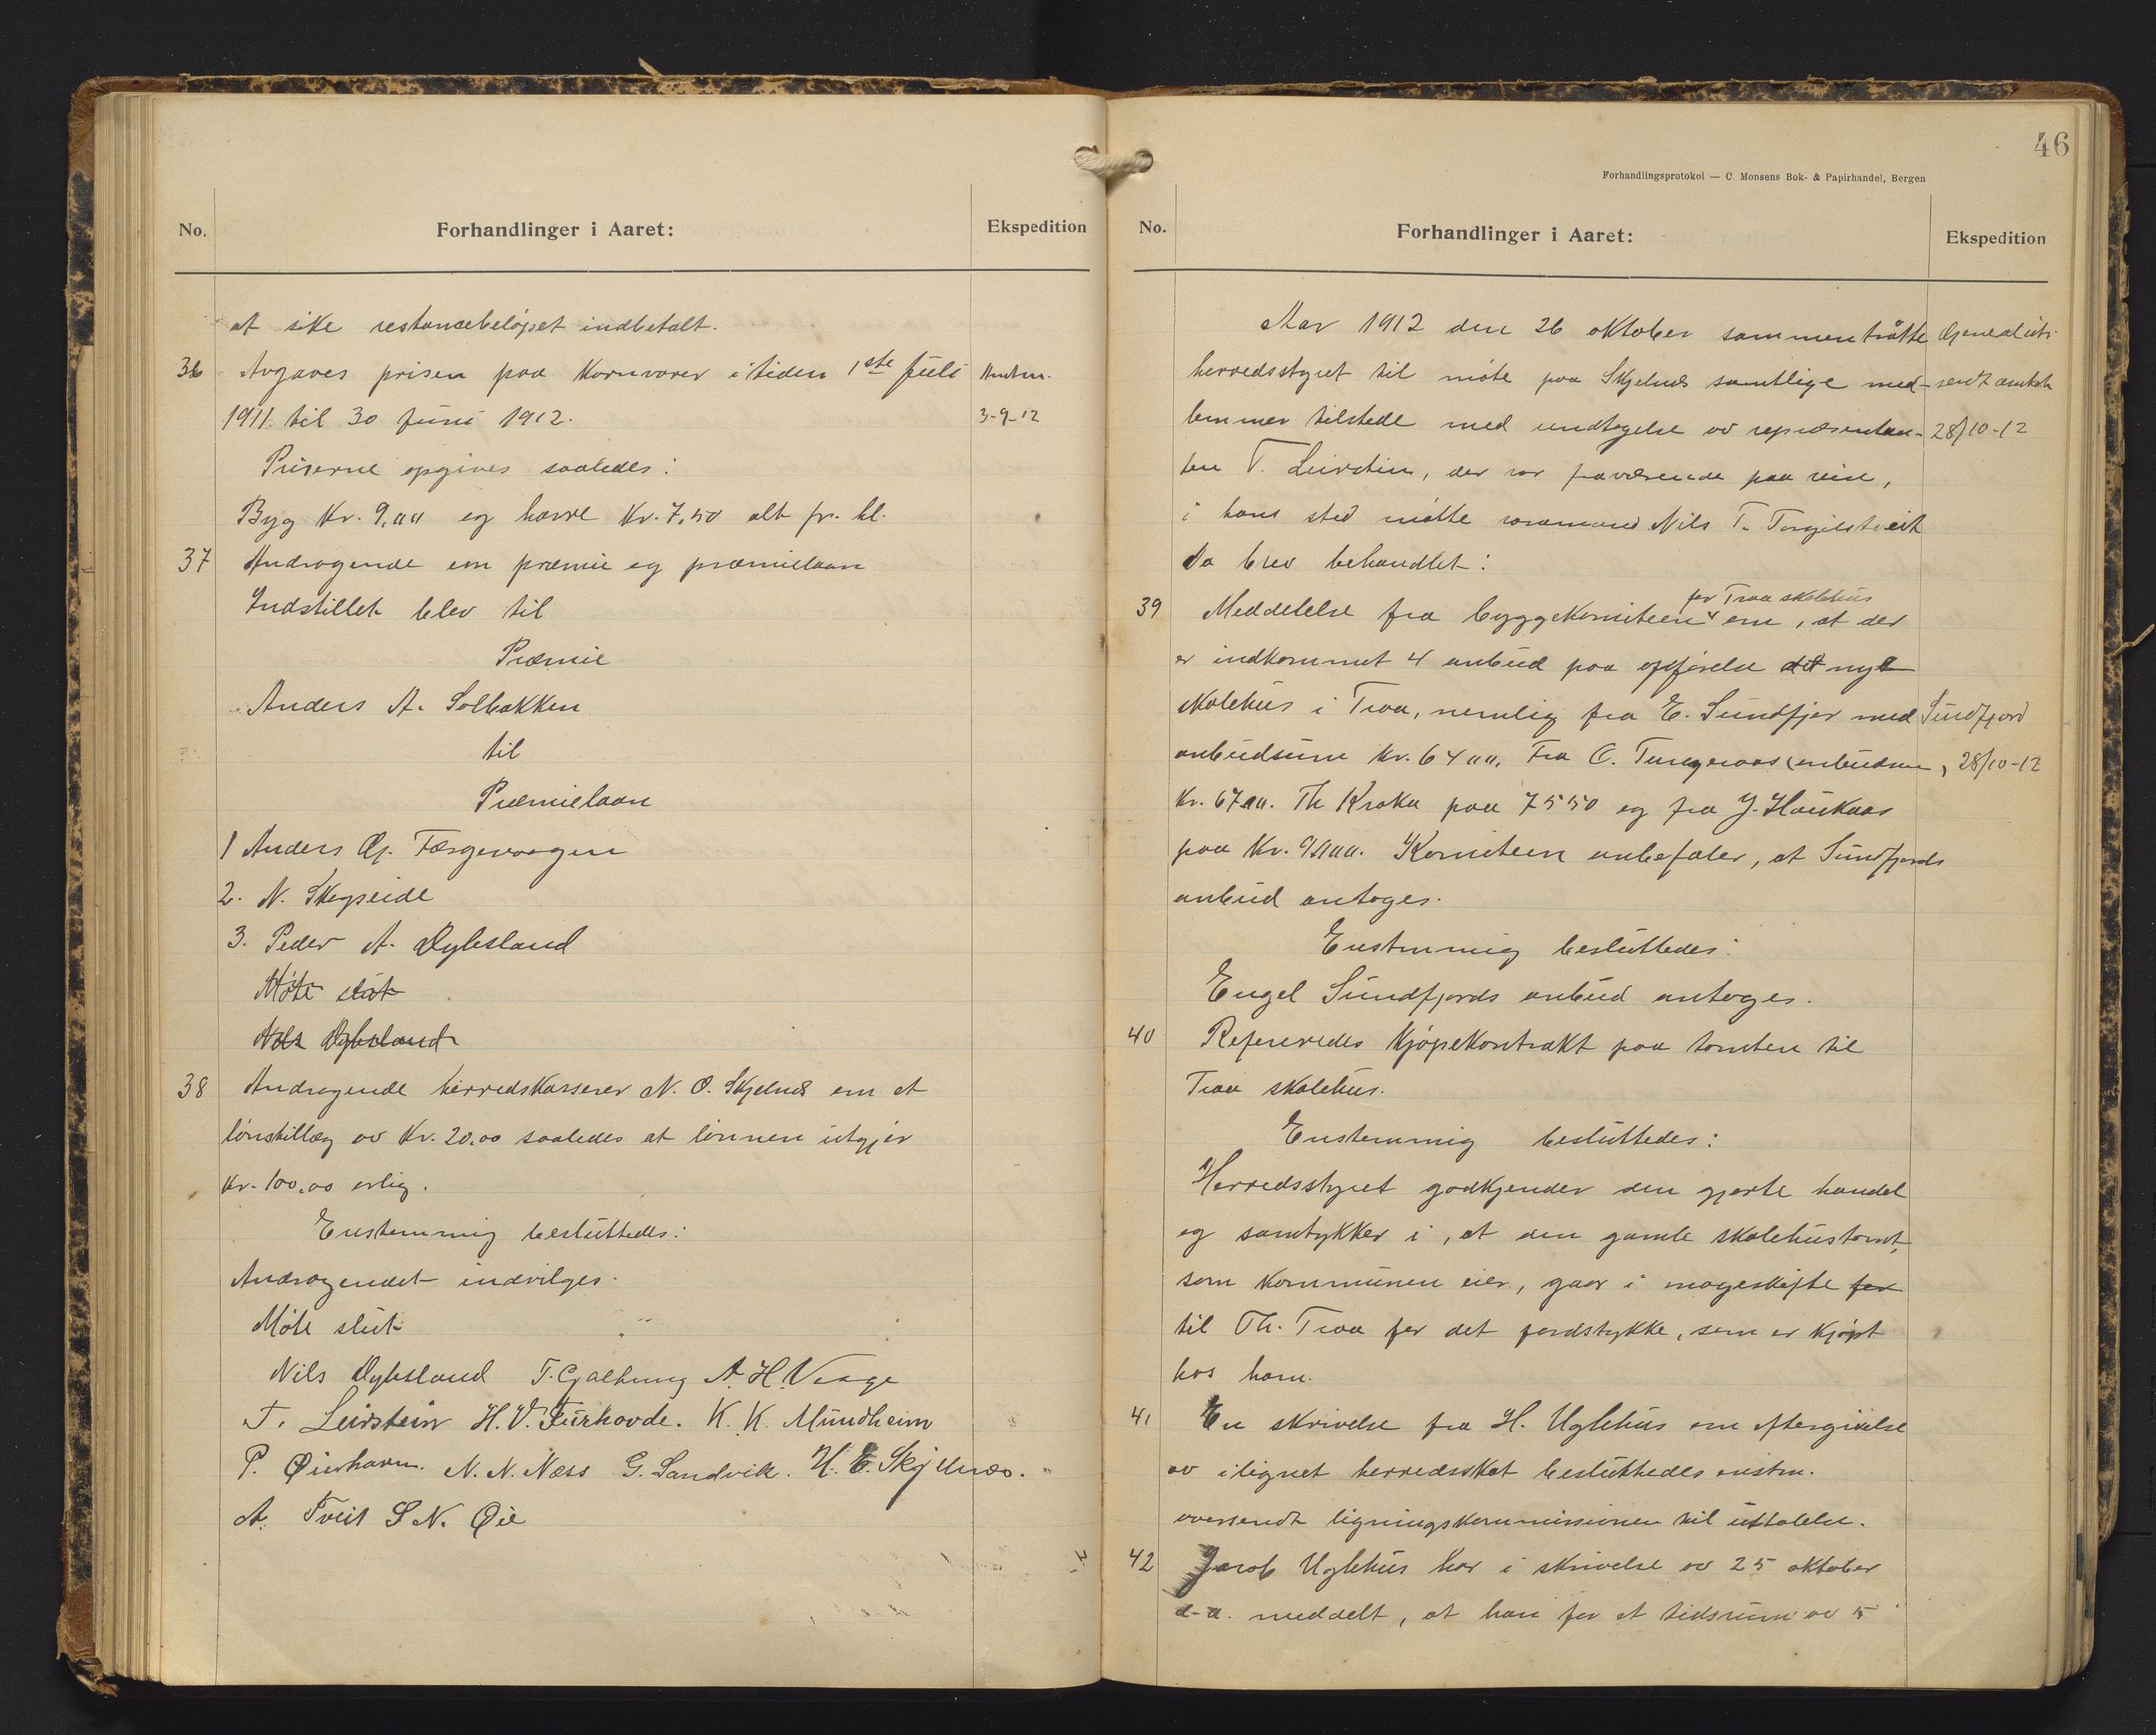 No.
Forhandlinger i Aaret:
Ekspedition
at ike restancebeløpet indbetalt.
36 Avgaves prisen paa kornvarer i tiden 1ste juli
1911 til 30 juni 1912.
3-9-12
Priserne opgives saaledes:
Byg Kr. 9,00 og havre Kr. 7,50 alt pr. hl.
37 Andragende om præmie og præmielaan
Indstillet blev til
Præmie
Anders A. Solbakken
til
Præmielaan
1 Anders Gj. Færgevaagen
2. N. Skogseide
3. Peder A. Dybsland
Møte slut
Nils Dybsland
38 Andragende herredskasserer N. O. Skjelnes om et
lønstillæg av Kr. 20.00 saaledes at lønnen utgjør
Kr. 100.00 aarlig.
Enstemmig besluttedes:
Andragendet indvilges.
Møte slut
Nils Dybsland T. Galtung A. H. Vaage
T. Leirstein H. V. Furhovde. K. K. Mundheim
P. Øierhavn. N. N. Næss G. Sandvik. H. E. Skjelnæs.
A. Tveit S. N. Øie
46
Forhandlingsprotokol — C. Monsens Bok- & Papirhandel, Bergen
No.
Forhandlinger i Aaret:
Ekspedition
Aar 1912 den 26 oktober sammentraatte
herredsstyret til møte paa Skjelnes samtlige med-
lemmer tilstede med undtagelse av repræsentan-
28/10-12
ten T. Leirstein, der var fraværende paa reise,
i hans sted møtte varamand Nils T. Torgilstveit
Da blev behandlet:
for Traa skolehus
39 Meddelelse fra byggekomiteen om, at der
er indkommet 4 anbud paa opførelse det nyt
skolehus i Traa, nemlig fra E. Sundfjor med
Sundfjord
anbudsum Kr. 6400. Fra O. Tungeraas (anbudsum
28/10-12
Kr. 6700. Th Kroka paa 7550 og fra J. Haukaas
paa Kr. 9000. Komiteen anbefaler, at Sundfjords
anbud antages.
Enstemmig besluttedes:
Engel Sundfjords anbud antages.
40 Refereredes kjøpekontrakt paa tomten til
Traa skolehus.
Enstemmig besluttedes:
Herredsstyret godkjender den gjorte handel
og samtykker i, at den gamle skolehustomt,
som kommunen eier, gaar i mageskifte for
til Th. Traa for det jordstykke, som er kjøpt
hos ham.
41 En skrivelse fra H. Uglehus om eftergivelse
av ilignet herredsskat besluttedes enstm.
oversendt ligningskommissionen til uttalelse.
42 Jacob Uglehus har i skrivelse av 25 oktober
d.a. meddelt, at han for et tidsrum av 5